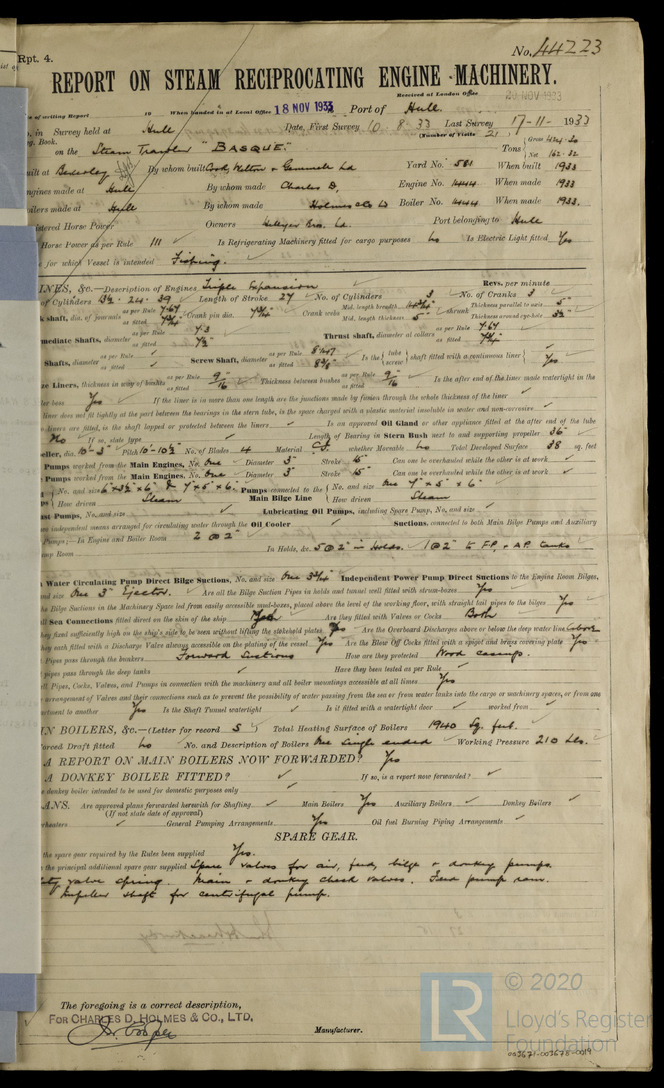 Rpt. 4.
No. 44223
REPORT ON STEAM RECIPROCATING ENGINE MACHINERY.
Received at London Office 20 NOV 1933
of writing Report 19 When handed in at Local Office 18 NOV 1933 Port of Hull.
No. in Survey held at Hull Date, First Survey 10-8-33 Last Survey 17-11-1933
Book. (Number of Visits 21)
on the Steam Trawler "BASQUE." Tons Gross Net 162.32
uilt at Beverley By whom built Cook, Welton & Gemmell Ld Yard No. 581 When built 1933
ngines made at Hull By whom made Charles D, Engine No. 1444 When made 1933
oilers made at Hull By whom made Holmes & Co Ld Boiler No. 1444 When made 1933.
istered Horse Power Owners Hellyer Bros. Ld. Port belonging to Hull
Horse Power as per Rule 111 Is Refrigerating Machinery fitted for cargo purposes No Is Electric Light fitted Yes
for which Vessel is intended Fishing.
INES, &c.—Description of Engines Triple Expansion Revs. per minute
of Cylinders 13½ - 24 - 39 Length of Stroke 27 No. of Cylinders 3 No. of Cranks 3
k shaft, dia. of journals as per Rule 7.67 as fitted 7¾ Crank pin dia. 7¾ Crank webs Mid. length breadth Mid. length thickness 5" shrunk Thickness parallel to axis 5" Thickness around eye-hole
mediate Shafts, diameter as per Rule 7.3 as fitted 7½ Thrust shaft, diameter at collars as per Rule 7.67 as fitted 7¾
Shafts, diameter as per Rule as fitted Screw Shaft, diameter as per Rule as fitted Is the tube screw shaft fitted with a continuous liner Yes
ze Liners, thickness in way of bushes as per Rule as fitted 9/16 Thickness between bushes as per Rule as fitted 9/16 Is the after end of the liner made watertight in the
ler boss Yes If the liner is in more than one length are the junctions made by fusion through the whole thickness of the liner
liner does not fit tightly at the part between the bearings in the stern tube, is the space charged with a plastic material insoluble in water and non-corrosive
liners are fitted, is the shaft lapped or protected between the liners Is an approved Oil Gland or other appliance fitted at the after end of the tube
No If so, state type Length of Bearing in Stern Bush next to and supporting propeller 36"
eller, dia. 10'-3" Pitch 10'-10½" No. of Blades 4 Material C.I. whether Moveable No Total Developed Surface 38 sq. feet
Pumps worked from the Main Engines, No. One Diameter 3" Stroke 15" Can one be overhauled while the other is at work
Pumps worked from the Main Engines, No. One Diameter 3" Stroke 15" Can one be overhauled while the other is at work
No. and size 6"x3½"x6" & 7"x5"x6" Pumps connected to the Main Bilge Line No. and size One 7"x5"x6"
How driven Steam How driven Steam
ast Pumps, No. and size Lubricating Oil Pumps, including Spare Pump, No. and size
independent means arranged for circulating water through the Oil Cooler Suctions, connected to both Main Bilge Pumps and Auxiliary
Pumps;—In Engine and Boiler Room 2 @ 2"
mp Room In Holds, &c. 5 @ 2" in Holds. 1 @ 2" to F.P. & A.P. tanks
Water Circulating Pump Direct Bilge Suctions, No. and size One 3¾ Independent Power Pump Direct Suctions to the Engine Room Bilges,
nd size One 3" Ejector. Are all the Bilge Suction Pipes in holds and tunnel well fitted with strum-boxes Yes
he Bilge Suctions in the Machinery Space led from easily accessible mud-boxes, placed above the level of the working floor, with straight tail pipes to the bilges Yes
ll Sea Connections fitted direct on the skin of the ship Yes Are they fitted with Valves or Cocks Both
hey fixed sufficiently high on the ship's side to be seen without lifting the stokehold plates Yes Are the Overboard Discharges above or below the deep water line above
hey each fitted with a Discharge Valve always accessible on the plating of the vessel Yes Are the Blow Off Cocks fitted with a spigot and brass covering plate Yes
Pipes pass through the bunkers Forward Suctions How are they protected Wood casings.
pipes pass through the deep tanks Have they been tested as per Rule
ll Pipes, Cocks, Valves, and Pumps in connection with the machinery and all boiler mountings accessible at all times Yes
arrangement of Valves and their connections such as to prevent the possibility of water passing from the sea or from water tanks into the cargo or machinery spaces, or from one
artment to another Yes Is the Shaft Tunnel watertight Is it fitted with a watertight door worked from
IN BOILERS, &c.—(Letter for record S) Total Heating Surface of Boilers 1940 Sq. feet.
orced Draft fitted No No. and Description of Boilers One Single ended Working Pressure 210 lbs.
A REPORT ON MAIN BOILERS NOW FORWARDED? Yes
A DONKEY BOILER FITTED? If so, is a report now forwarded?
e donkey boiler intended to be used for domestic purposes only
ANS. Are approved plans forwarded herewith for Shafting Main Boilers Yes Auxiliary Boilers Donkey Boilers
(If not state date of approval)
rheaters General Pumping Arrangements Yes Oil fuel Burning Piping Arrangements
SPARE GEAR.
the spare gear required by the Rules been supplied Yes.
the principal additional spare gear supplied Spare valves for air, feed, bilge & donkey pumps.
ety valve spring. Main & donkey check valves. Feed pump ram.
Impeller shaft for centrifugal pump.
The foregoing is a correct description,
FOR CHARLES D. HOLMES & CO., LTD.
Manufacturer.
© 2020
LR
Lloyd's Register
Foundation
003671-003678-0019